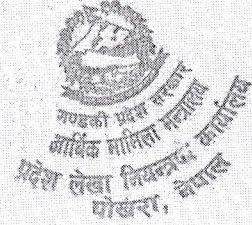 गण्डकी प्रदेश सरकार
आर्थिक मामिला मन्त्रालय
प्रदेश लेखा नियन्त्रक कार्यालय
पोखरा, नेपाल